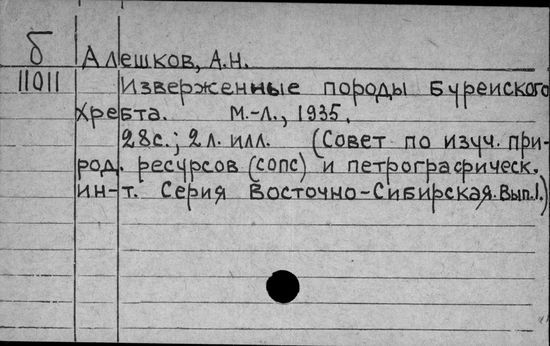 б Алешков, А.Н.
11011 Изверженные породы Буреиского
хребта. М.-Л., 1935.
28с.; 2 л. илл. (Совет по изуч. при-
род. ресурсов (сопс) и петрографическ.
ин-т. Серия Восточно-Сибирская. Вып.1.)